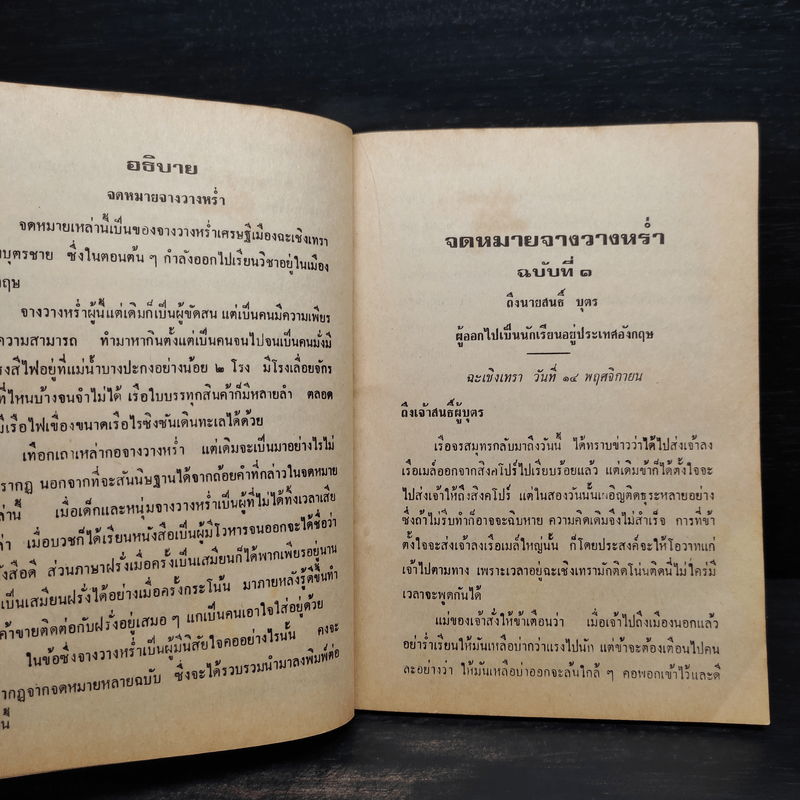 อธิบาย
จดหมายจางวางหร่ำ
จดหมายเหล่านี้เป็นของจางวางหร่ำเศรษฐีเมืองฉะเชิงเทรา
บุตรชาย ซึ่งในตอนต้น ๆ กำลังออกไปเรียนวิชาอยู่ในเมือง
กฤษ
จางวางหร่ำผู้นี้แต่เดิมก็เป็นผู้ขัดสน แต่เป็นคนมีความเพียร
ความสามารถ ทำมาหากินตั้งแต่เป็นคนจนไปจนเป็นคนมั่งมี
รงสีไฟอยู่ที่แม่น้ำบางปะกงอย่างน้อย ๒ โรง มีโรงเลื่อยจักร
ที่ไหนบ้างจนจำไม่ได้ เรือใบบรรทุกสินค้าก็มีหลายลำ ตลอด
มีเรือไฟเขื่องขนาดเรือไรซิงซันเดินทะเลได้ด้วย
เทือกเถาเหล่ากอจางวางหร่ำ แต่เดิมจะเป็นมาอย่างไรไม่
รากฏ นอกจากที่จะสันนิษฐานได้จากถ้อยคำที่กล่าวในจดหมาย
ล่านี้ เมื่อเด็กและหนุ่มจางวางหร่ำเป็นผู้ที่ไม่ได้ทิ้งเวลาเสีย
ล่า เมื่อบวชก็ได้เรียนหนังสือเป็นผู้มีโวหารจนออกจะได้ชื่อว่า
ังสือดี ส่วนภาษาฝรั่งเมื่อครั้งเป็นเสมียนก็ได้พากเพียรอยู่นาน
เป็นเสมียนฝรั่งได้อย่างเมื่อครั้งกระโน้น มาภายหลังรู้ดีขึ้นทำ
ค้าขายติดต่อกับฝรั่งอยู่เสมอ ๆ แกเป็นคนเอาใจใส่อยู่ด้วย
ในข้อซึ่งจางวางหร่ำเป็นผู้มีนิสัยใจคออย่างไรนั้น คงจะ
ากฏจากจดหมายหลายฉบับ ซึ่งจะได้รวบรวมนำมาลงพิมพ์ต่อ
นี้
จดหมายจางวางหร่ำ
ฉบับที่ ๑
ถึงนายสนธิ์ บุตร
ผู้ออกไปเป็นนักเรียนอยู่ประเทศอังกฤษ
ฉะเชิงเทรา วันที่ ๑๔ พฤศจิกายน
ถึงเจ้าสนธิ์ผู้บุตร
เรือจรสมุทรกลับมาถึงวันนี้ ได้ทราบข่าวว่าได้ไปส่งเจ้าลง
เรือเมล์ออกจากสิงคโปร์ไปเรียบร้อยแล้ว แต่เดิมข้าก็ได้ตั้งใจจะ
ไปส่งเจ้าให้ถึงสิงคโปร์ แต่ในสองวันนั้นเผอิญติดธุระหลายอย่าง
ซึ่งถ้าไม่รีบทำก็อาจจะฉิบหาย ความคิดเดิมจึงไม่สำเร็จ การที่ข้า
ตั้งใจจะส่งเจ้าลงเรือเมล์ใหญ่นั้น ก็โดยประสงค์จะให้โอวาทแก่
เจ้าไปตามทาง เพราะเวลาอยู่ฉะเชิงเทรามักติดโน่นติดนี่ไม่ใคร่มี
เวลาจะพูดกันได้
แม่ของเจ้าสั่งให้ข้าเตือนว่า เมื่อเจ้าไปถึงเมืองนอกแล้ว
อย่าร่ำเรียนให้มันเหลือบ่ากว่าแรงไปนัก แต่ข้าจะต้องเตือนไปคน
ละอย่างว่า ให้มันเหลือบ่าออกจะล้นใกล้ ๆ คอพอกเข้าไว้และดี